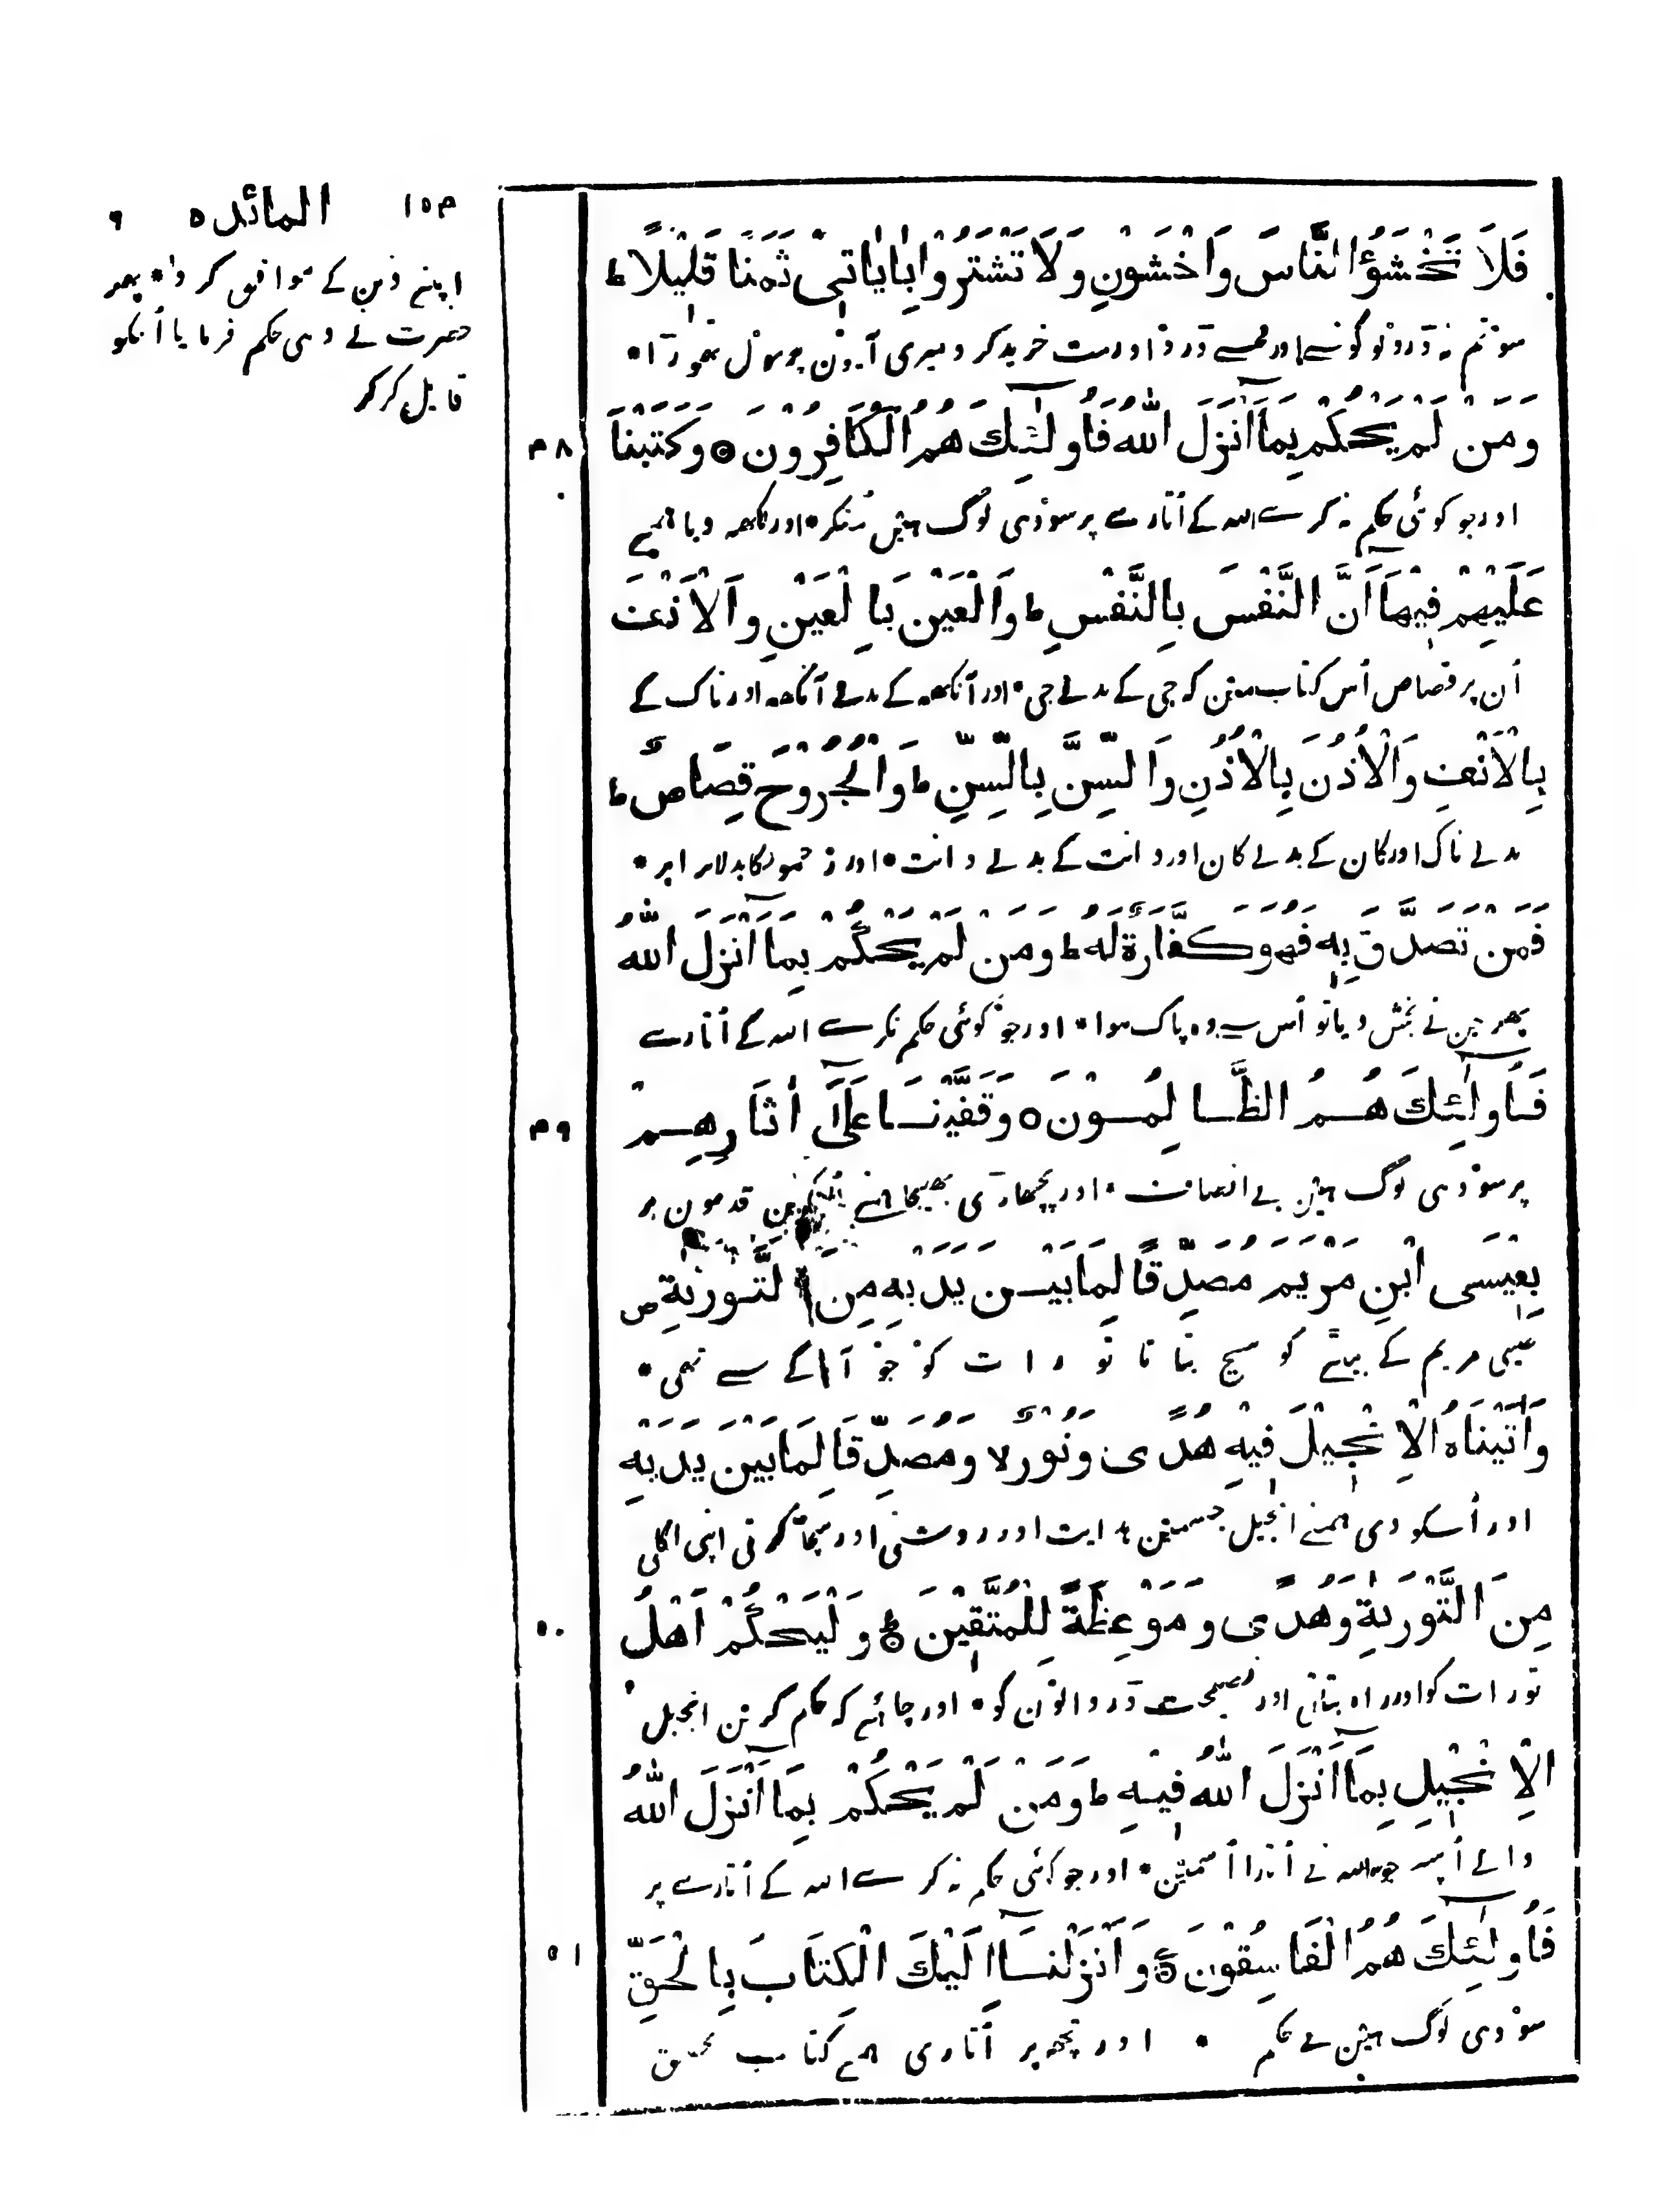 ١٥٣ المائده ٥ ٦
اپنے دین کے موافق کر دا * پھر
حضرت نے وہی حکم فرمایا اُنکو
قایل کر کر
فَلَا تَخْشَوُا النَّاسَ وَاخْشَوْنِ وَلَا تَشْتَرُوْا بِاٰيَاتِيْ ثَمَنًا قَلِيْلًا ط
سو تم نہ ڈرو لوگو نسے اور مجھسے ڈرو اور مت خرید کرو میری آیتون پر مول تھورآ *
وَمَنْ لَمْ يَحْكُمْ بِمَآ اَنْزَلَ اللّٰهُ فَاُولٰٓئِكَ هُمُ الْكَافِرُوْنَ ۝ وَكَتَبْنَا
٤٨
اور جو کوئی حکم نہ کرے اللہ کے اُتارے پر سو وہی لوگ ہیں مُنکر * اور لکھہ دیا ہمنے
عَلَيْهِمْ فِيْهَا اَنَّ النَّفْسَ بِالنَّفْسِ ط وَالْعَيْنَ بِالْعَيْنِ وَالْاَنْفَ
اُن پر قصاص اُس کتاب مین کہ جی کے بدلے جی * اور آنکھہ کے بدلے آنکھہ اور ناک کے
بِالْاَنْفِ وَالْاُذُنَ بِالْاُذُنِ وَالسِّنَّ بِالسِّنِّ ط وَالْجُرُوْحَ قِصَاصٌ ط
بدلے ناک اور کان کے بدلے کان اور دانت کے بدلے دانت * اور زخمونکا بدلا برابر *
فَمَنْ تَصَدَّقَ بِهٖ فَهُوَ كَفَّارَةٌ لَهُ ط وَمَنْ لَمْ يَحْكُمْ بِمَآ اَنْزَلَ اللّٰهُ
پھر جن نے بخش دیا تو اُس سے وہ پاک ہوا * اور جو کوئی حکم نکرے اللہ کے اُتارے
فَاُولٰٓئِكَ هُمُ الظَّالِمُوْنَ ۝ وَقَفَّيْنَا عَلٰٓى اٰثَارِهِمْ
٤٩
پر سو وہی لوگ ہیں بے انصاف * اور پچھاڑی بھیجا ہمنے قدمون پر
بِعِيْسَى ابْنِ مَرْيَمَ مُصَدِّقًا لِمَا بَيْنَ يَدَيْهِ مِنَ التَّوْرٰىةِ ص
عیسی مریم کے بیٹے کو سچ بتاتا تورات کو جو آگے سے تھی *
وَاٰتَيْنَاهُ الْاِنْجِيْلَ فِيْهِ هُدًى وَنُوْرٌ لا وَمُصَدِّقًا لِمَا بَيْنَ يَدَيْهِ
اور اُسکو دی ہمنے انجیل جسمین ہدایت اور روشنی اور سچا کرتی اپنی اگلی
مِنَ التَّوْرٰىةِ وَهُدًى وَمَوْعِظَةً لِلْمُتَّقِيْنَ ۝ ط وَلْيَحْكُمْ اَهْلُ
٥٠
تورات کو اور راہ بتاتی اور نصیحت ڈر والون کو * اور چاہئے کہ حکم کرین انجیل
الْاِنْجِيْلِ بِمَآ اَنْزَلَ اللّٰهُ فِيْهِ ط وَمَنْ لَمْ يَحْكُمْ بِمَآ اَنْزَلَ اللّٰهُ
والے اُسپر جو اللہ نے اُتارا اُسمین * اور جو کوئی حکم نہ کرے اللہ کے اُتارے پر
فَاُولٰٓئِكَ هُمُ الْفَاسِقُوْنَ ۝ وَاَنْزَلْنَآ اِلَيْكَ الْكِتَابَ بِالْحَقِّ
٥١
سو وہی لوگ ہین بے حکم * اور تجھہ پر اُتاری ہمنے کتاب تحقیق